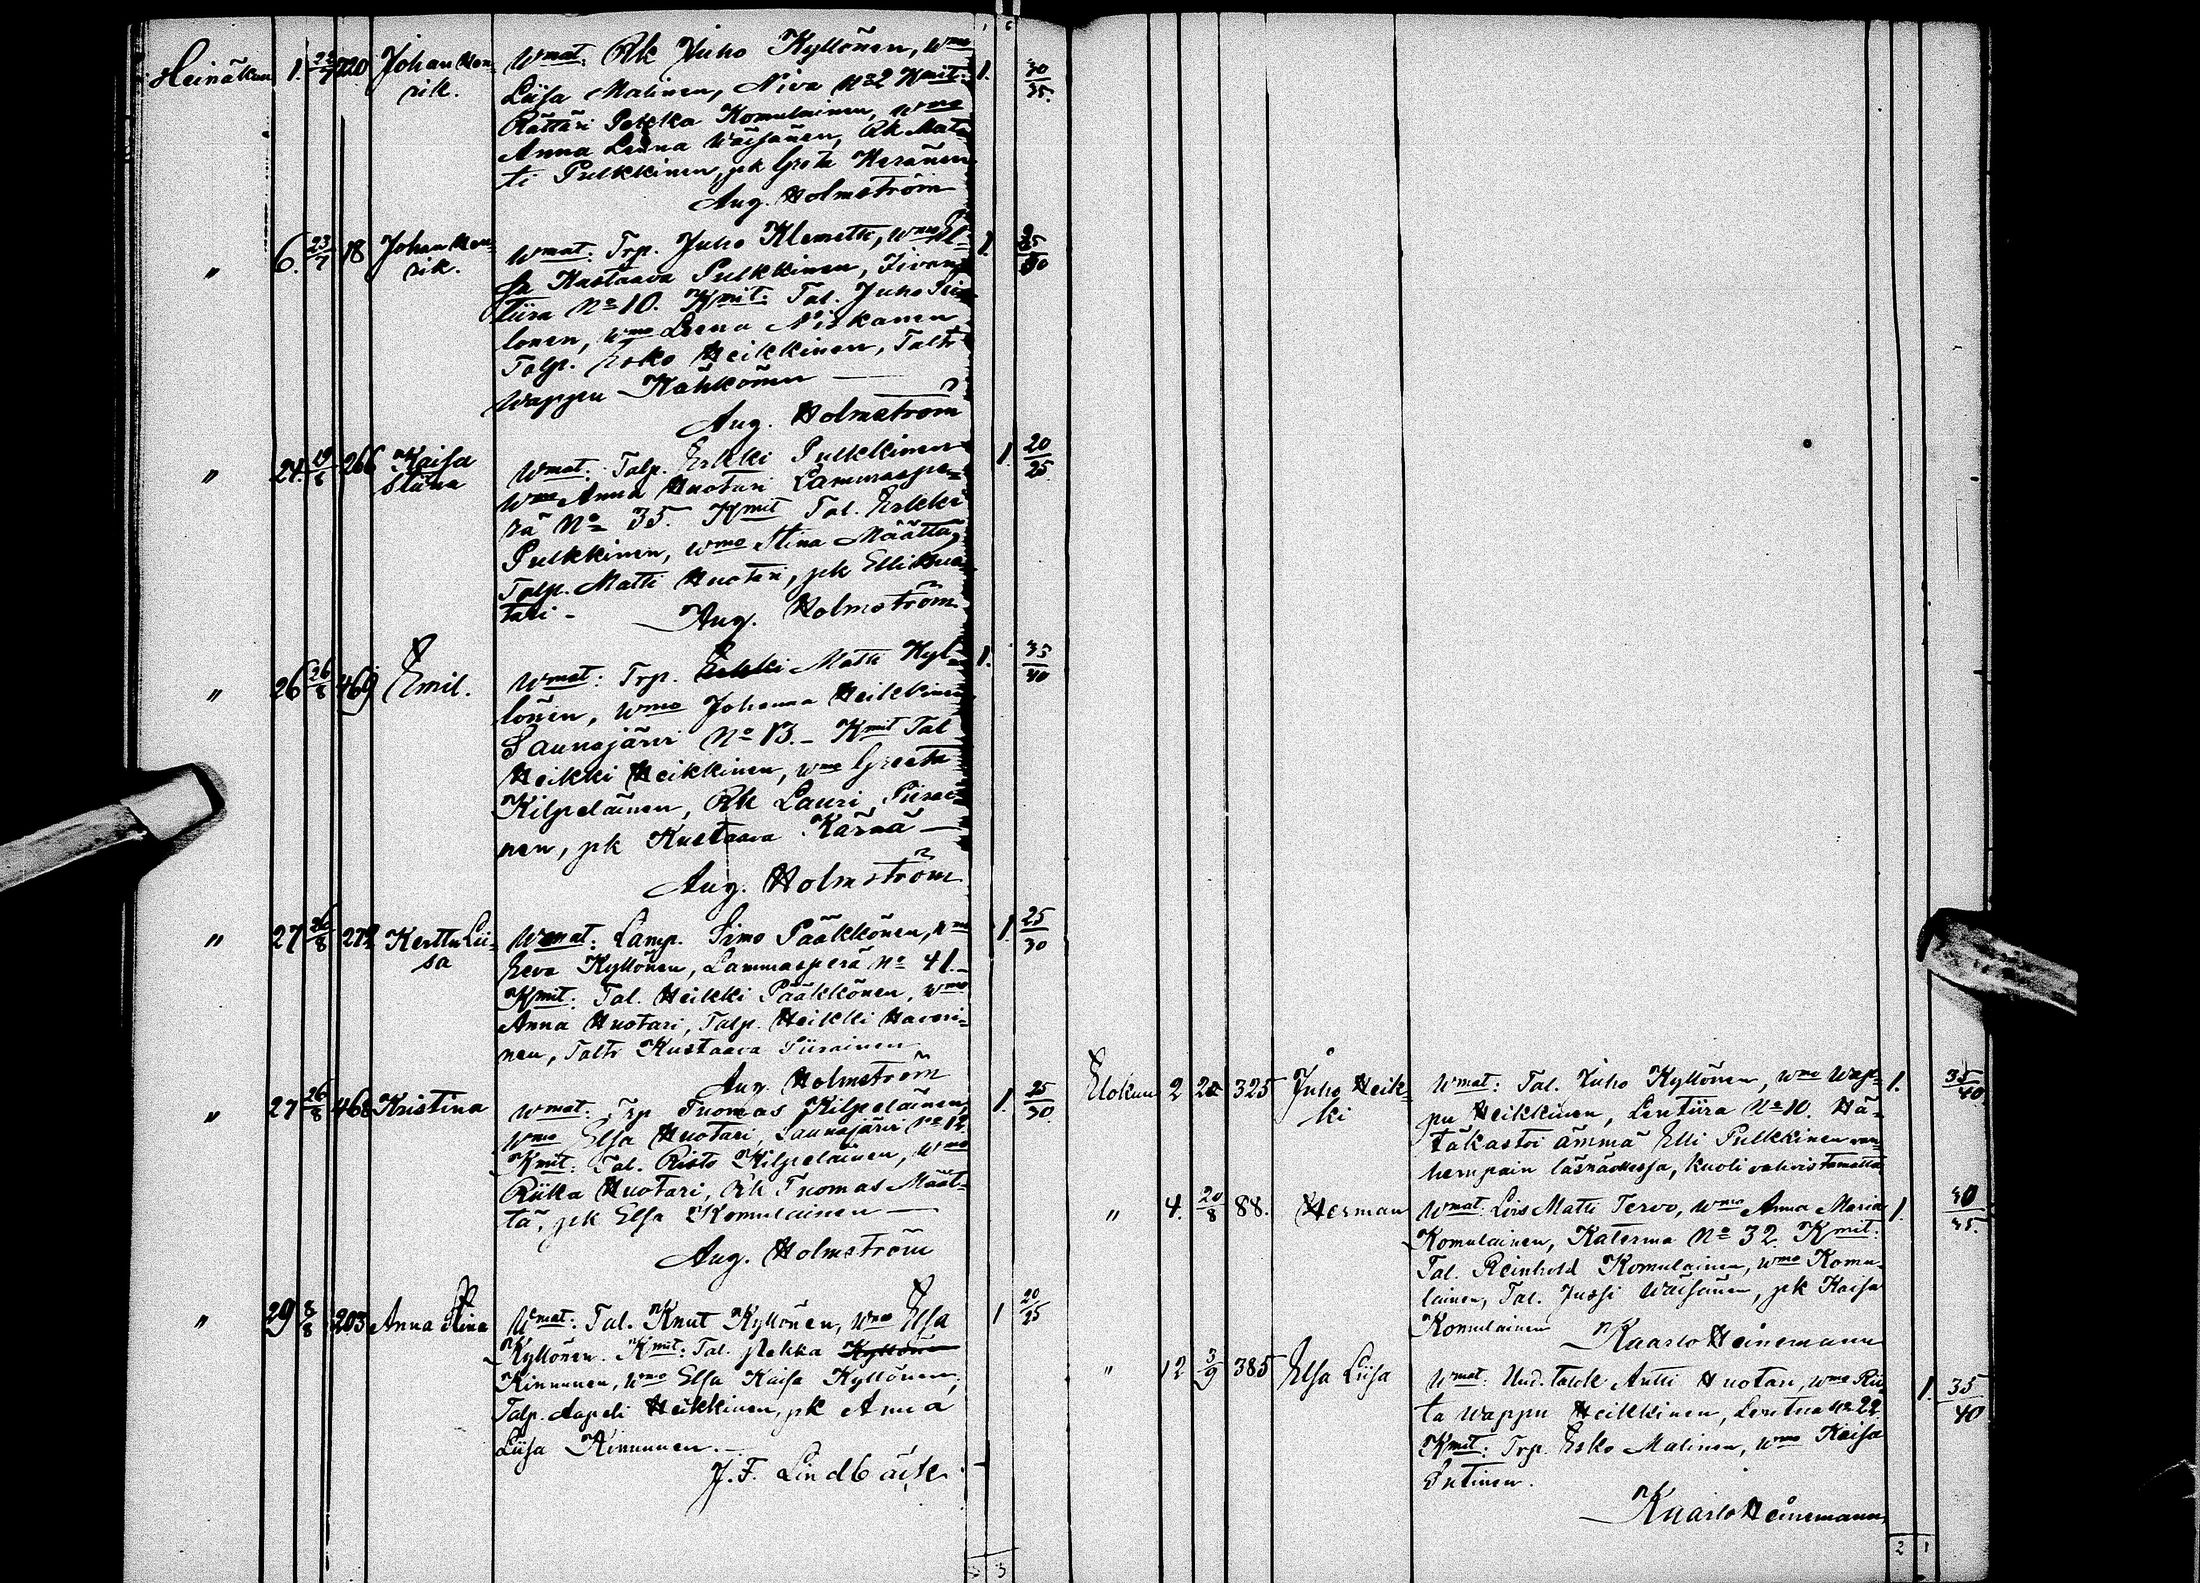 Heinäkuu 1. 720 Johan Hen- Wmat: Rk Juho Kyllönen, Wmo 1. 30
rik. Liisa Malinen, Niva No 2 Kmit: 35.
Räätäri Pekka Komulainen, Wmo
Anna Leena Väisänen, Rk Mat-
ti Pulkkinen, pk Greta Keränen
Aug. Holmström
" 6. 23/7 18 Johan Hen- Wmat: Trp. Juho Klemetti, Wmo El- 1. 25
rik. sa Kustaava Pulkkinen, 30
tiira No 10. Kmit: Tal. Juho
lonen, Wmo Leena Niskanen
Talp. Esko Heikkinen, Taltr
Wappu Kähkönen —
Aug. Holmström
" 24. 266 Kaisa Wmat: Talp. Erkki Pulkkinen 1. 20
Stiina Wmo Anna Huotari Lammaspe- 25
rä No 35. Kmit Tal. Erkki
Pulkkinen, Wmo Stina Määttä,
Talp. Matti Huotari, pk Elli Huo-
tari - Aug. Holmström
" 26 26/8 469 Emil. Wmat: Trp. Erkki Matti Kyl- 1. 35
lönen, Wmo Johanna Heikkinen 40
Saunajärvi No 13. - Kmit Tal
Heikki Heikkinen, Wmo Greeta
Kilpeläinen, Rk Lauri Piirai-
nen, pk Kustaava Kärnä —
Aug. Holmström
" 27 26/8 Kerttu Lii- Wmat: Lamp. Simo Pääkkönen, Wmo 1. 25
sa Eeva Kyllönen, Lammasperä No 41. - 30
Kmit: Tal. Heikki Pääkkönen, Wmo
Anna Huotari, Talp. Heikki Haveri-
nen, Taltr Kustaava Piirainen
Aug. Holmström
" 27 26/8 468 Kristina Wmat: Trp Tuomas Kilpeläinen, 1. 25
Wmo Elsa Huotari, Saunajärvi No 12 30.
Kmit: Tal. Risto Kilpeläinen, Wmo
Riika Huotari, Rk Tuomas Määt-
tä, pk Elsa Komulainen —
Aug. Holmström
" 29 8/8 203 Anna Stina Wmat: Tal. Knut Kyllönen, Wmo Elsa 1 20
Kyllönen. Kmit: Tal. Pekka Kyllönen 25
Kinnunen, Wmo Elsa Kaisa Kyllönen,
Talp. Aapeli Heikkinen, pk Anna
Liisa Kinnunen. —
J. F. Lindbäck.
3
Elokuu 2 325 Juho Heik- Wmat: Tal. Juho Kyllönen, Wmo Wap- 1. 35
ki pu Heikkinen, Lentiira No 10. Hä- 40
täkastoi ämmä Elli Pulkkinen van-
hempain läsnäollessa, kuoli vahvistamatta
" 4. 20/8 88. Herman Wmat: Lois Matti Tervo, Wmo Anna Maria 1. 30
Komulainen, Katerma No 32. Kmit: 35.
Tal. Reinhold Komulainen, Wmo Komu-
lainen, Tal. Jussi Väisänen, pk Kaisa
Komulainen Kaarlo Heinemann
" 12 3/9 385 Elsa Liisa Wmat: Uud. talok Antti Huotari, Wmo Rii- 1. 35
ta Wappu Heikkinen, Lentua No 22 40
Kmit: Trp. Esko Malinen, Wmo Kaisa
Kaarlo Heinemann
2 1